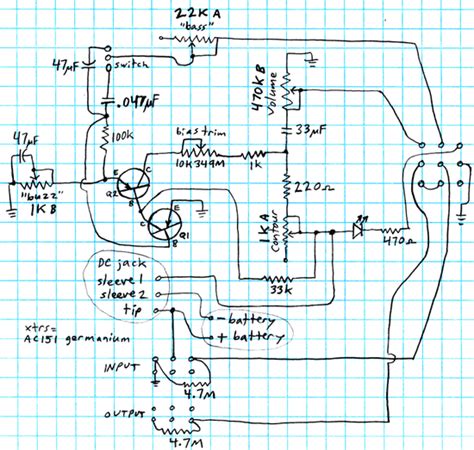 22KA
"bass"
47µF
switch
.047µF
470KB
Volume
.33µF
100k
47µF
bias trim
10K 349m
1k
E
C
Q2
B
"buzz"
1KB
220Ω
E
C
Q1
B
1KA
Contour
470Ω
33k
DC jack
sleeve 1
sleeve 2
tip
- battery
+ battery
xtrs=
AC151 germanium
INPUT
4.7M
OUTPUT
4.7M